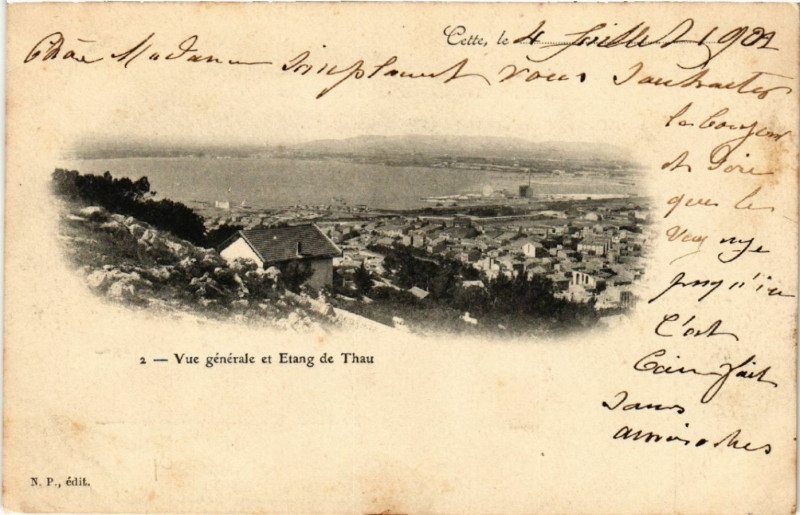 Cette, le 4 Juillet 1902
Chère Madame simplement vous souhaiter
le bonjour
et dire
que le
voyage
jusqu'ici
c'est
bien fait
sans
anicroches
2 — Vue générale et Etang de Thau
N. P., édit.